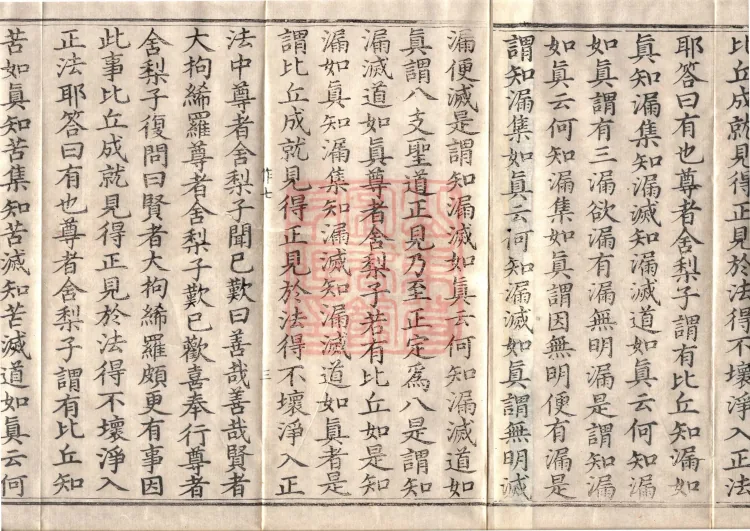 比丘成就見得正見於法得不壞淨入正法
耶答曰有也尊者舍梨子謂有比丘知漏如
眞知漏集知漏滅知漏滅道如眞云何知漏
如眞謂有三漏欲漏有漏無明漏是謂知漏
如眞云何知漏集如眞謂因無明便有漏是
謂知漏集如眞云何知漏滅如眞謂無明滅
漏便滅是謂知漏滅如眞云何知漏滅道如
眞謂八支聖道正見乃至正定爲八是謂知
漏滅道如眞尊者舍梨子若有比丘如是知
漏如眞知漏集知漏滅知漏滅道如眞者是
謂比丘成就見得正見於法得不壞淨入正
作七 三
法中尊者舍梨子聞已歎曰善哉善哉賢者
大拘絺羅尊者舍梨子歎已歡喜奉行尊者
舍梨子復問曰賢者大拘絺羅頗更有事因
此事比丘成就見得正見於法得不壞淨入
正法耶答曰有也尊者舍梨子謂有比丘知
苦如眞知苦集知苦滅知苦滅道如眞云何